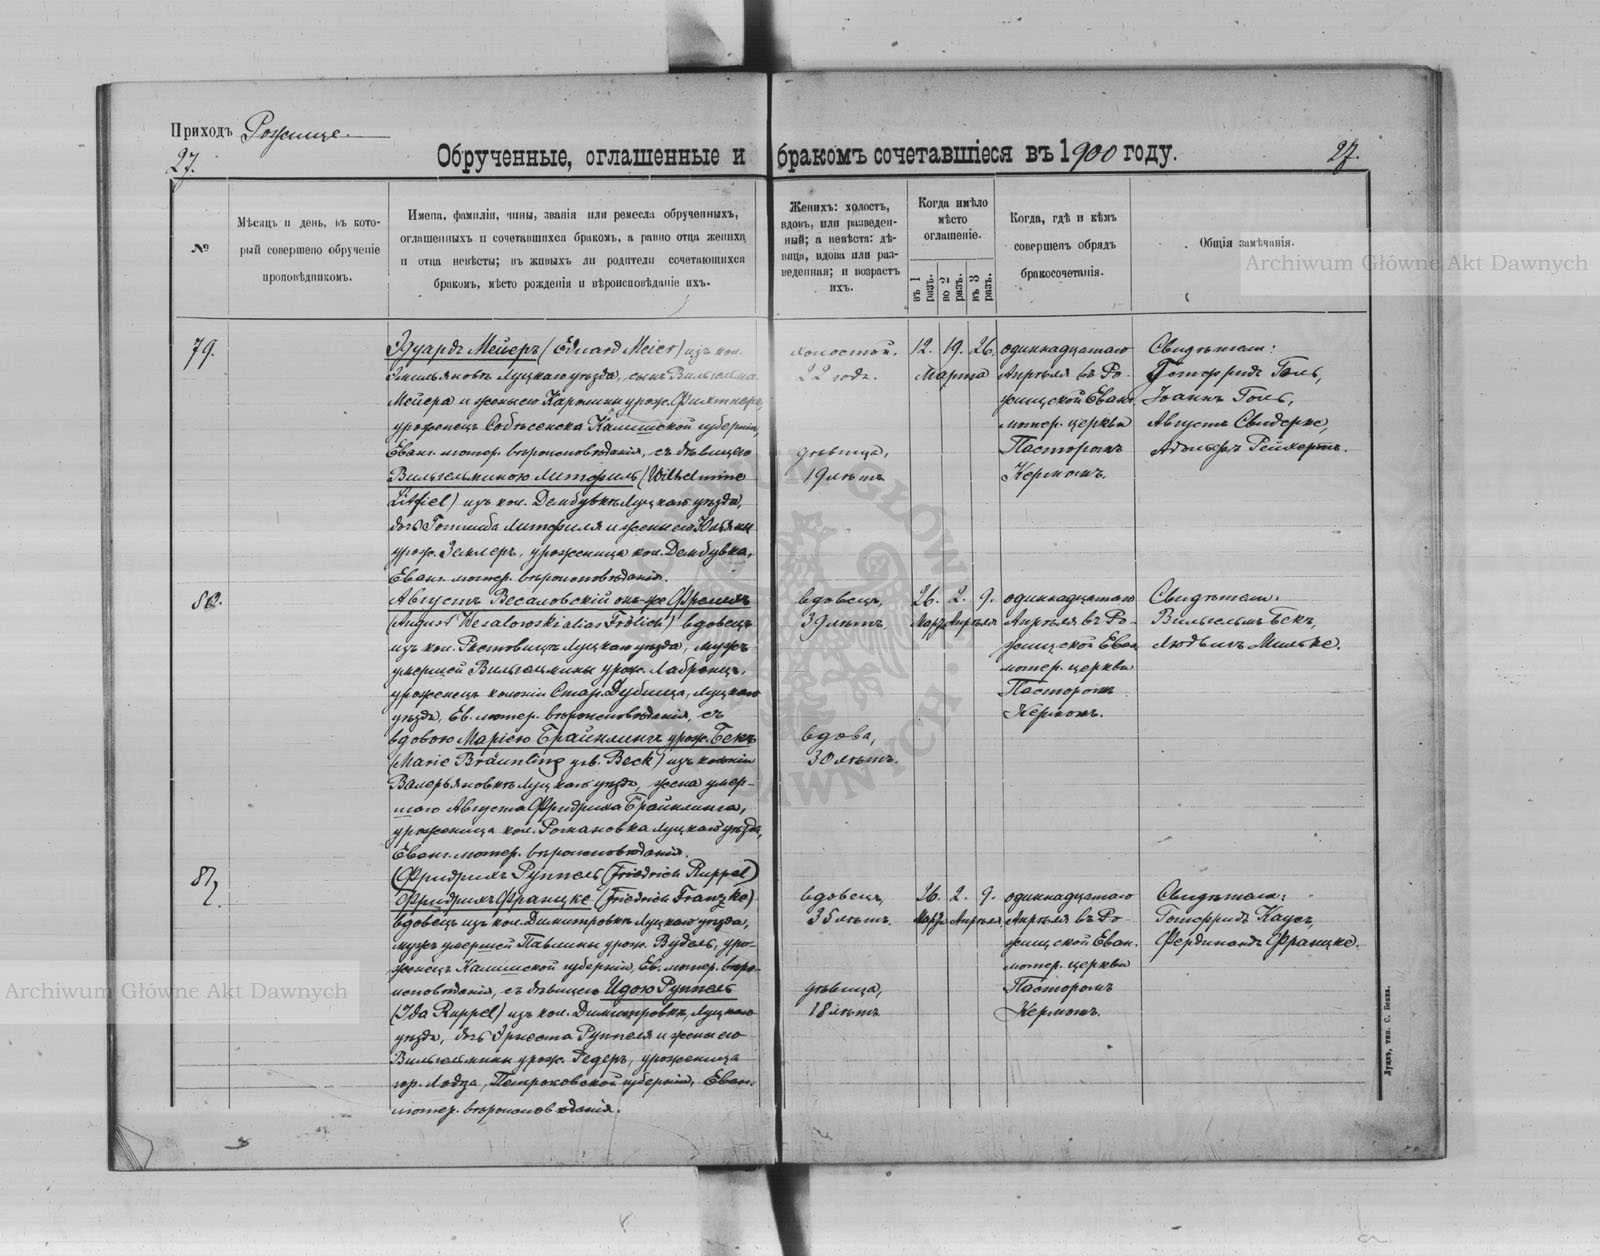 Приходъ Рожище.
27.
Обрученные, оглашенные и бракомъ сочетавшіеся въ 1900 году.
27.
№
Мѣсяцъ и день, въ кото-
рый совершено обрученіе
проповѣдникомъ.
Имена, фамиліи, чины, званія или ремесла обрученныхъ,
оглашенныхъ и сочетавшихся бракомъ, а равно отца жениха
и отца невѣсты; въ живыхъ ли родители сочетающихся
бракомъ, мѣсто рожденія и вѣроисповѣданіе ихъ.
Женихъ: холостъ,
вдовъ, или разведен-
ный; а невѣста: дѣ-
вица, вдова или раз-
веденная; и возрастъ
ихъ.
Когда имѣло
мѣсто
оглашеніе.
въ 1 разъ.
во 2 разъ.
въ 3 разъ.
Когда, гдѣ и кѣмъ
совершенъ обрядъ
бракосочетанія.
Общія замѣчанія.
Archiwum Główne Akt Dawnych
79.
Эдуардъ Мейеръ (Eduard Meier) изъ кол.
Эмильяновъ Луцкаго уѣзда, сынъ Вильгельма
Мейера и жены его Каролины урож.
уроженецъ Калишской губерніи,
Еванг. лютер. вѣроисповѣданія, съ дѣвицею
Вильгельминою Литфиль (Wilhelmine
Litfiel) изъ кол. Дембувкѣ Луцкаго уѣзда,
дочь Готлиба Литфиля и жены его
урож. Зеклеръ, уроженица кол. Дембувка,
Еванг. лютер. вѣроисповѣданія.
холостой,
22 года.
дѣвица,
19 лѣтъ
12. 19. 26.
Марта
одиннадцатаго
Апрѣля въ Ро-
жищской Еванг.
лютер. церкви
Пасторомъ
Кермомъ.
Свидѣтели:
Готфридъ Голь,
Іоаннъ Голь,
Августъ Свидерке,
Адольфъ Рейхертъ.
80.
Августъ Весаловскій онъ-же Фрелихъ
(August Wesalowski alias Frölich) вдовецъ
изъ кол. Луцкаго уѣзда, мужъ
умершей Вильгельмины урож.
уроженецъ колоніи Стар. Дубища, Луцкаго
уѣзда, Ев. лютер. вѣроисповѣданія, съ
вдовою Маріею Брайнлингъ урож. Бекъ
(Marie Bräunling geb. Beck) изъ колоніи
Валерьяновкѣ Луцкаго уѣзда, жена умер-
шаго Августа Фридриха Брайнлинга,
уроженица кол. Романовка Луцкаго уѣзда,
Еванг. лютер. вѣроисповѣданія.
вдовецъ,
39 лѣтъ.
вдова,
30 лѣтъ.
26. 2. 9.
Марта Апрѣля
одиннадцатаго
Апрѣля въ Ро-
жищской Еван.
лютер. церкви
Пасторомъ
Кермомъ.
Свидѣтели:
Вильгельмъ Бекъ,
Людвигъ Мильке.
81.
(Фридрихъ Руппель (Friedrich Ruppel)
Фридрихъ Францке (Friedrich Franzke)
вдовецъ изъ кол. Димитровкѣ Луцкаго уѣзда,
мужъ умершей Павлины урож. Вудель, уро-
женецъ Калишской губерніи, Ев. лютер. вѣро-
исповѣданія, съ дѣвицею Идою Руппель
(Ida Ruppel) изъ кол. Димитровкѣ, Луцкаго
уѣзда, дочь Эрнста Руппеля и жены его
Вильгельмины урож. Гедеръ, уроженица
гор. Лодза, Петроковской губерніи, Еван.
лютер. вѣроисповѣданія.
вдовецъ,
35 лѣтъ.
дѣвица,
18 лѣтъ
26. 2. 9.
Марта Апрѣля
одиннадцатаго
Апрѣля въ Ро-
жищской Еван.
лютер. церкви
Пасторомъ
Кермомъ.
Свидѣтели:
Готфридъ Каусъ,
Фердинандъ Францке.
Archiwum Główne Akt Dawnych
Луцкъ, тип. С. Бокка.